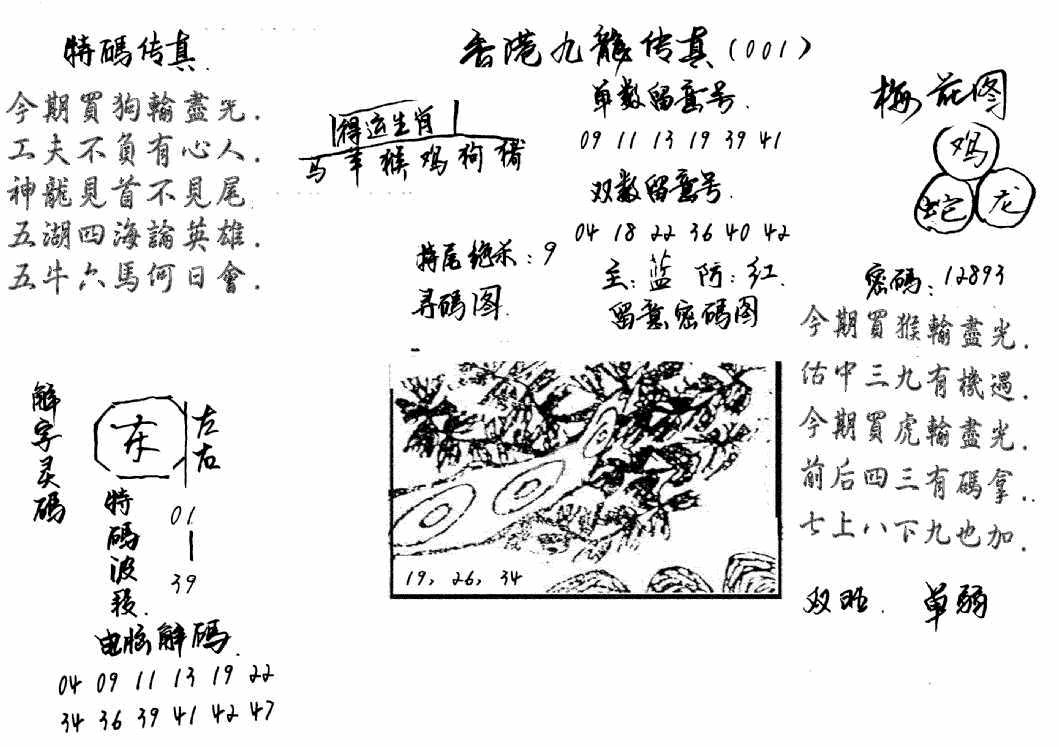 特碼传真.
今期買狗輸盡光.
工夫不負有心人.
神龍見首不見尾.
五湖四海論英雄.
五牛六馬何日會.
香港九龍传真(001)
得运生肖
马羊猴鸡狗猪
单数留意号.
09 11 13 19 39 41
双数留意号
04 18 22 36 40 42
特尾绝杀:9
主:蓝 防:红.
寻码图.
留意密碼图
19, 26, 34
梅花图
鸡
蛇
龙
密碼:12893
今期買猴輸盡光.
估中三九有機遇.
今期買虎輸盡光.
前后四三有碼拿..
七上八下九也加.
双旺. 单弱
解字灵码
左右
特碼波段.
01
39
电脑解碼.
04 09 11 13 19 22
34 36 39 41 42 47